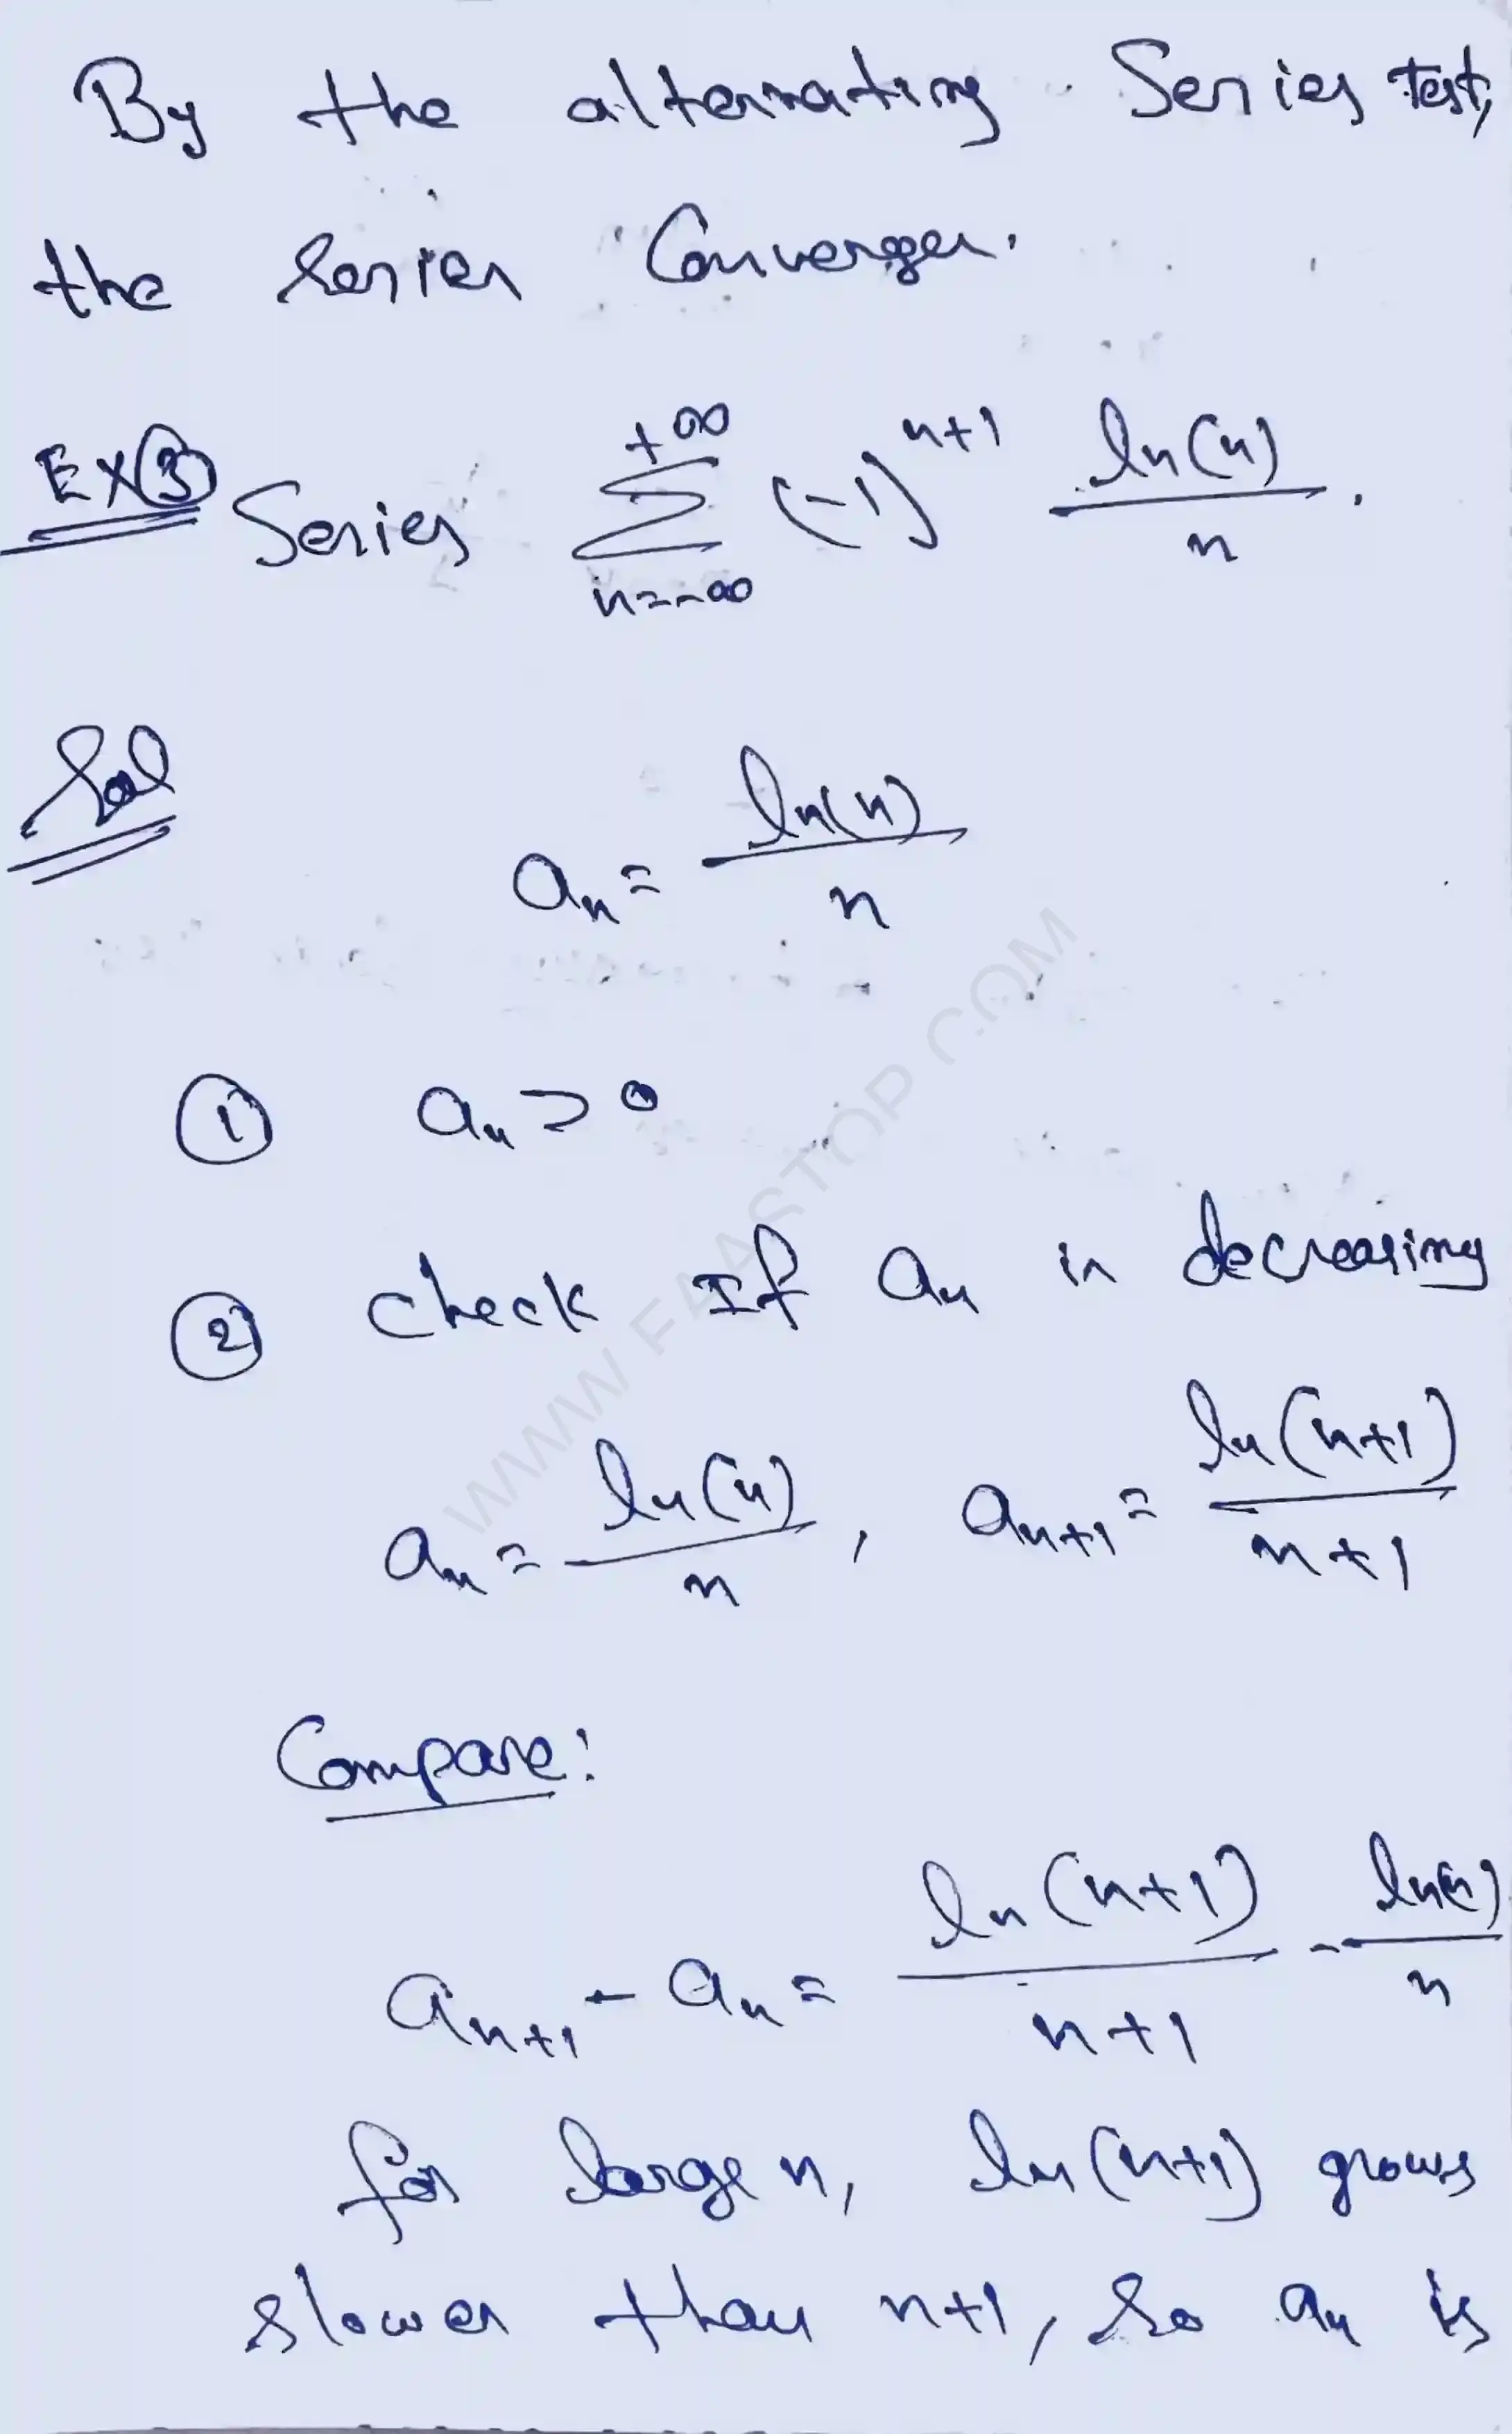 By the alternating Series test,
the series Converges.
EX③ Series +∞ ∑ n=-∞ (-1)^{n+1} ln(n)/n.
Sol
aₙ = ln(n)/n
① aₙ > 0
② check If aₙ is decreasing
aₙ = ln(n)/n, aₙ₊₁ = ln(n+1)/n+1
Compare:
aₙ₊₁ - aₙ = ln(n+1)/n+1 - ln(n)/n
for large n, ln(n+1) grows
slower than n+1, so aₙ is
WWW.FAASTOP.COM